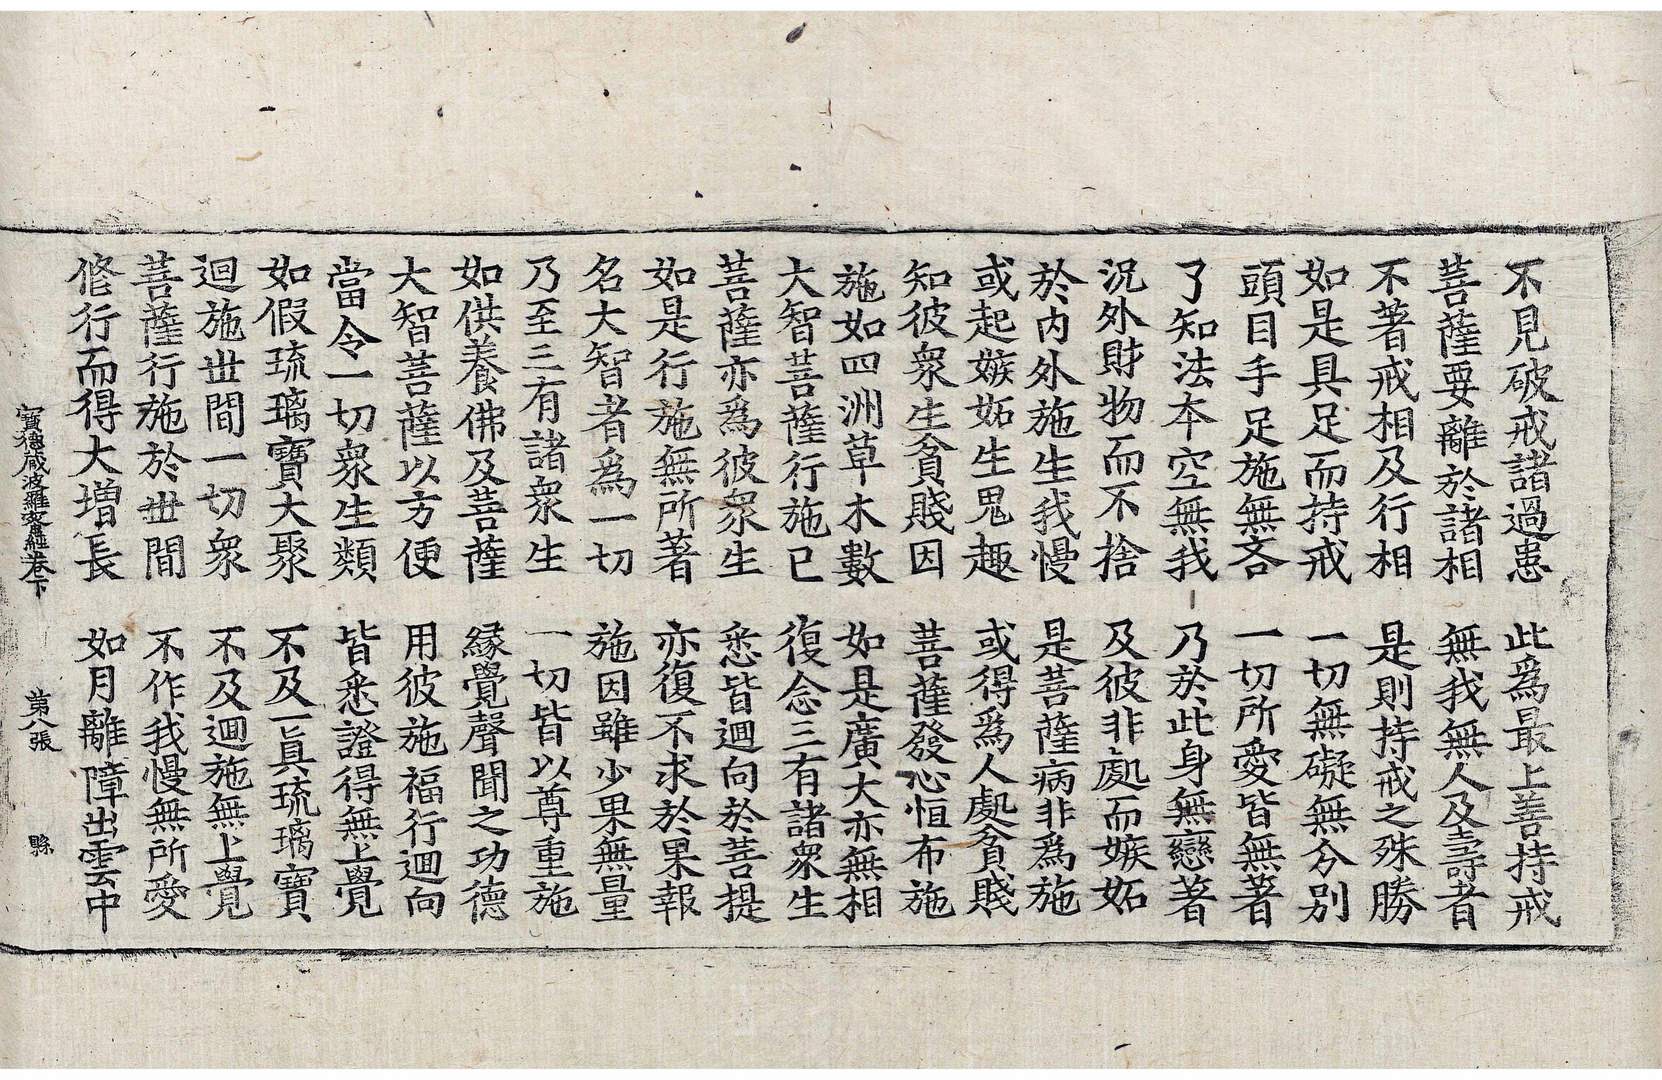 不見破戒諸過患　此爲最上善持戒
菩薩要離於諸相　無我無人及壽者
不著戒相及行相　是則持戒之殊勝
如是具足而持戒　一切無礙無分別
頭目手足施無吝　一切所愛皆無著
了知法本空無我　乃於此身無戀著
況外財物而不捨　及彼非處而嫉妬
於內外施生我慢　是菩薩病非爲施
或起嫉妬生鬼趣　或得爲人處貧賤
知彼衆生貧賤因　菩薩發心恒布施
施如四洲草木數　如是廣大亦無相
大智菩薩行施已　復念三有諸衆生
菩薩亦爲彼衆生　悉皆迴向於菩提
如是行施無所著　亦復不求於果報
名大智者爲一切　施因雖少果無量
乃至三有諸衆生　一切皆以尊重施
如供養佛及菩薩　緣覺聲聞之功德
大智菩薩以方便　用彼施福行迴向
當令一切衆生類　皆悉證得無上覺
如假琉璃寶大聚　不及一眞琉璃寶
迴施世間一切衆　不及迴施無上覺
菩薩行施於世間　不作我慢無所愛
修行而得大增長　如月離障出雲中
寶德藏波羅蜜經卷下　第八張　縣